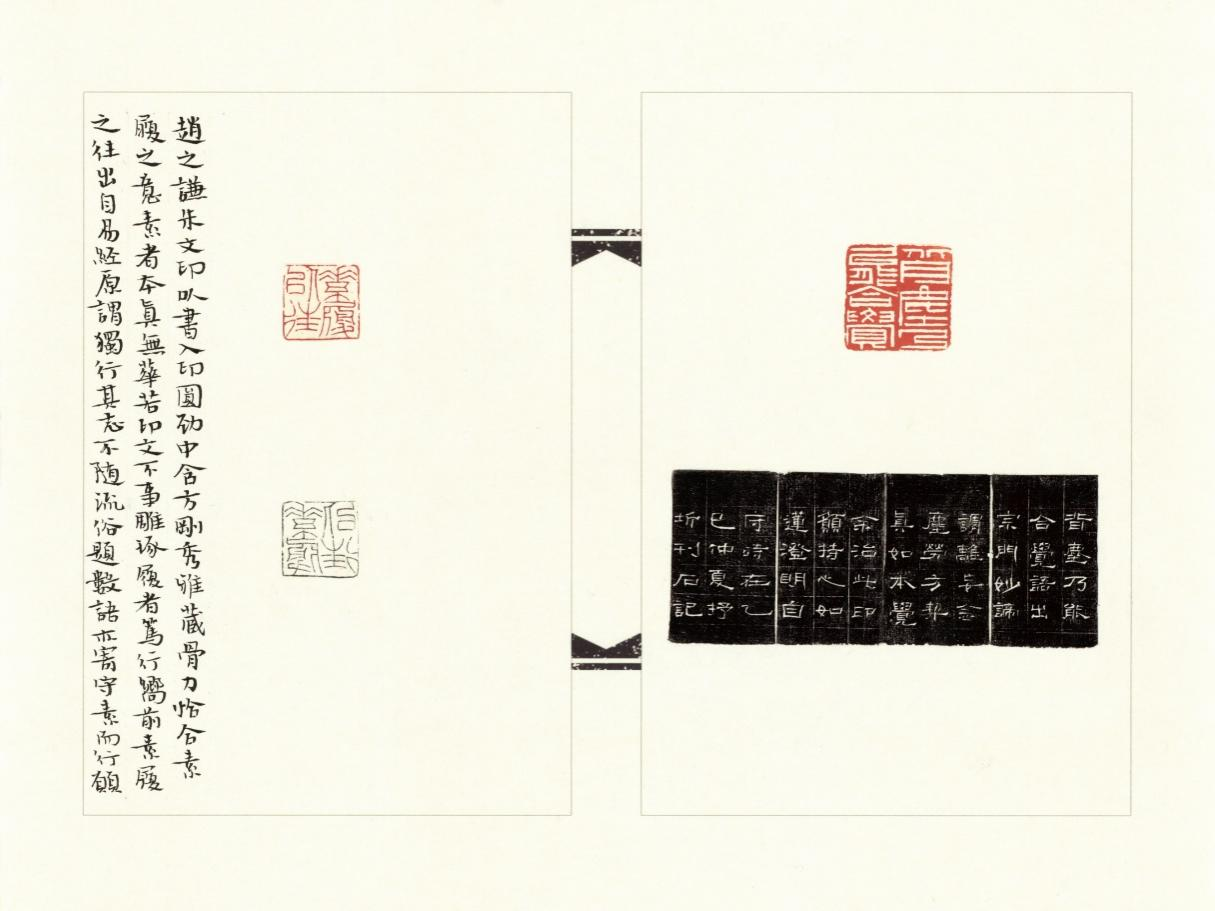 背塵乃
能合覺
背塵乃能
合覺語出
宗門妙諦
謂離妄念
塵勞方契
真如本覺
余治此印
願持心如
蓮澄明自
守時在乙
巳仲夏抒
圻刊石記
素履
以往
趙之謙朱文印以書入印圓劲中含方剛秀雅藏骨力恰合素
履之意素者本真無華若印文不事雕琢履者篤行嚮前素履
之往出自易經原謂獨行其志不随流俗題數語亦寄守素而行願